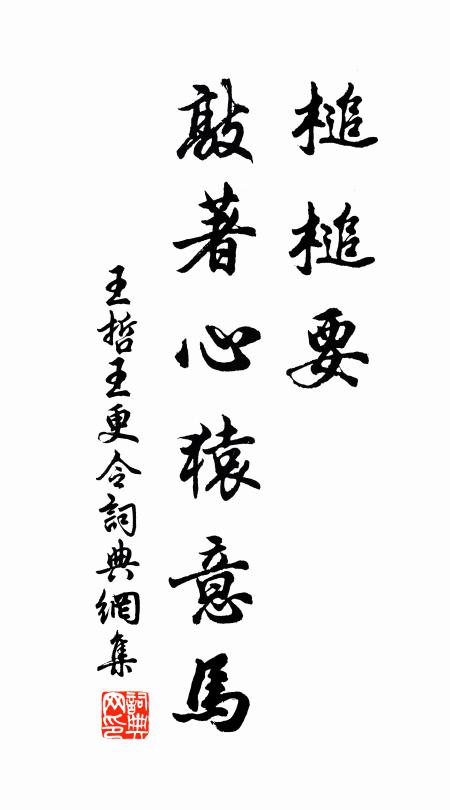 槌槌要
敲著心猿意馬
王哲王更令詞典網集
詞典网印